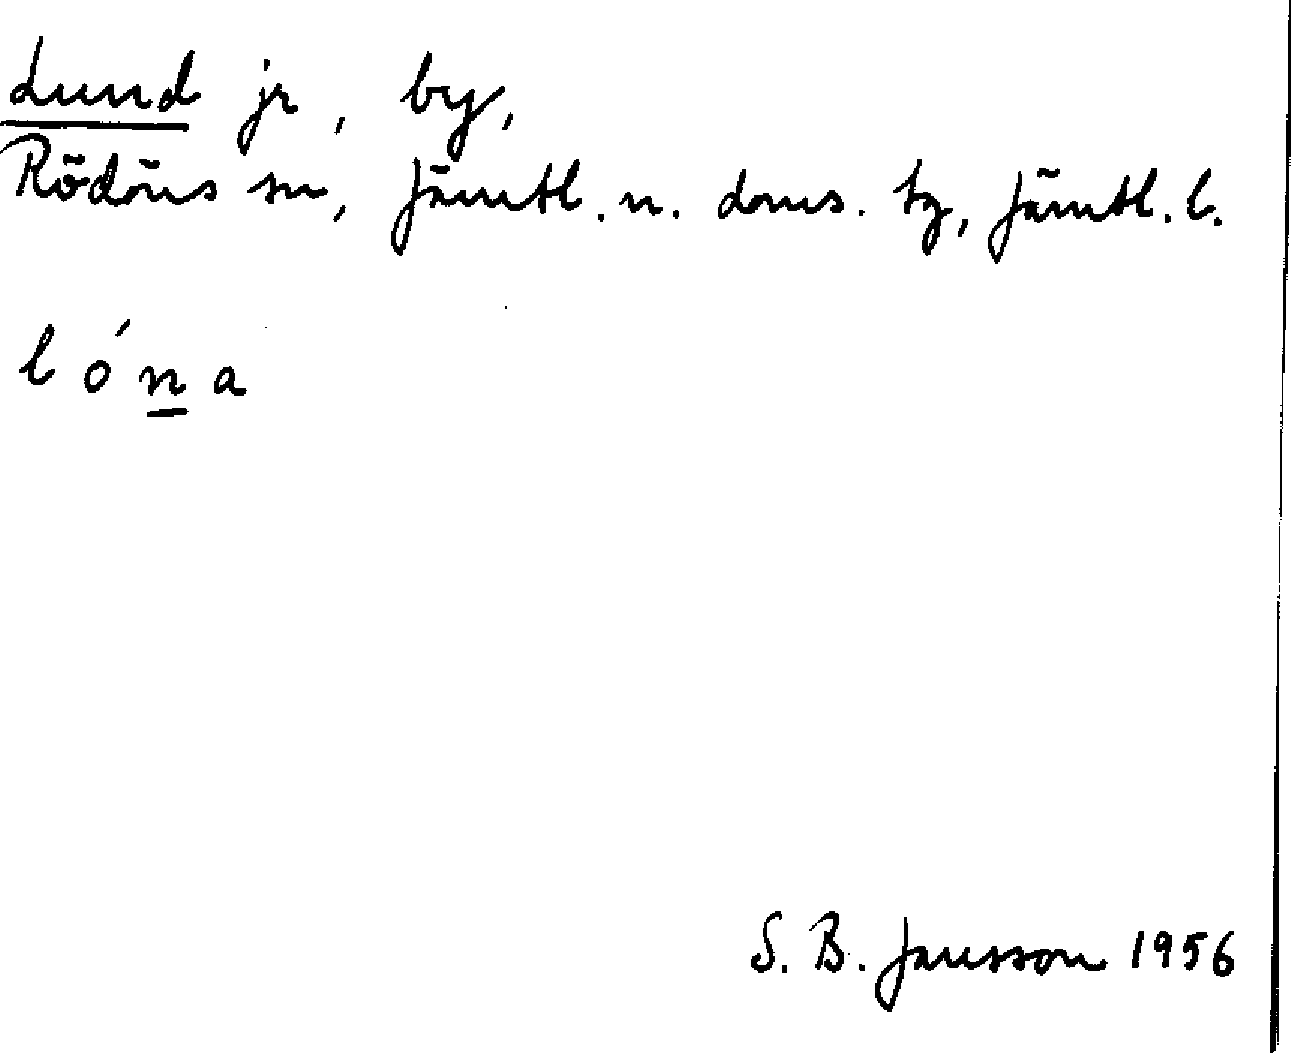 Lund jr, by,
Rödöns sn, Jämtl. n. doms. tg, Jämtl. l.
lóna
S. B. Jansson 1956